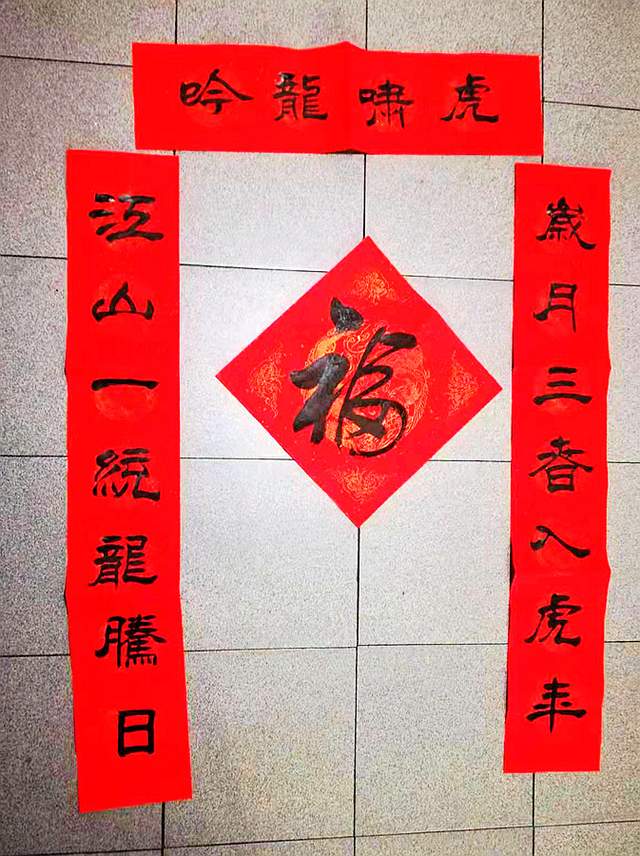 虎嘯龍吟
歲月三春入虎年
江山一統龍騰日
福